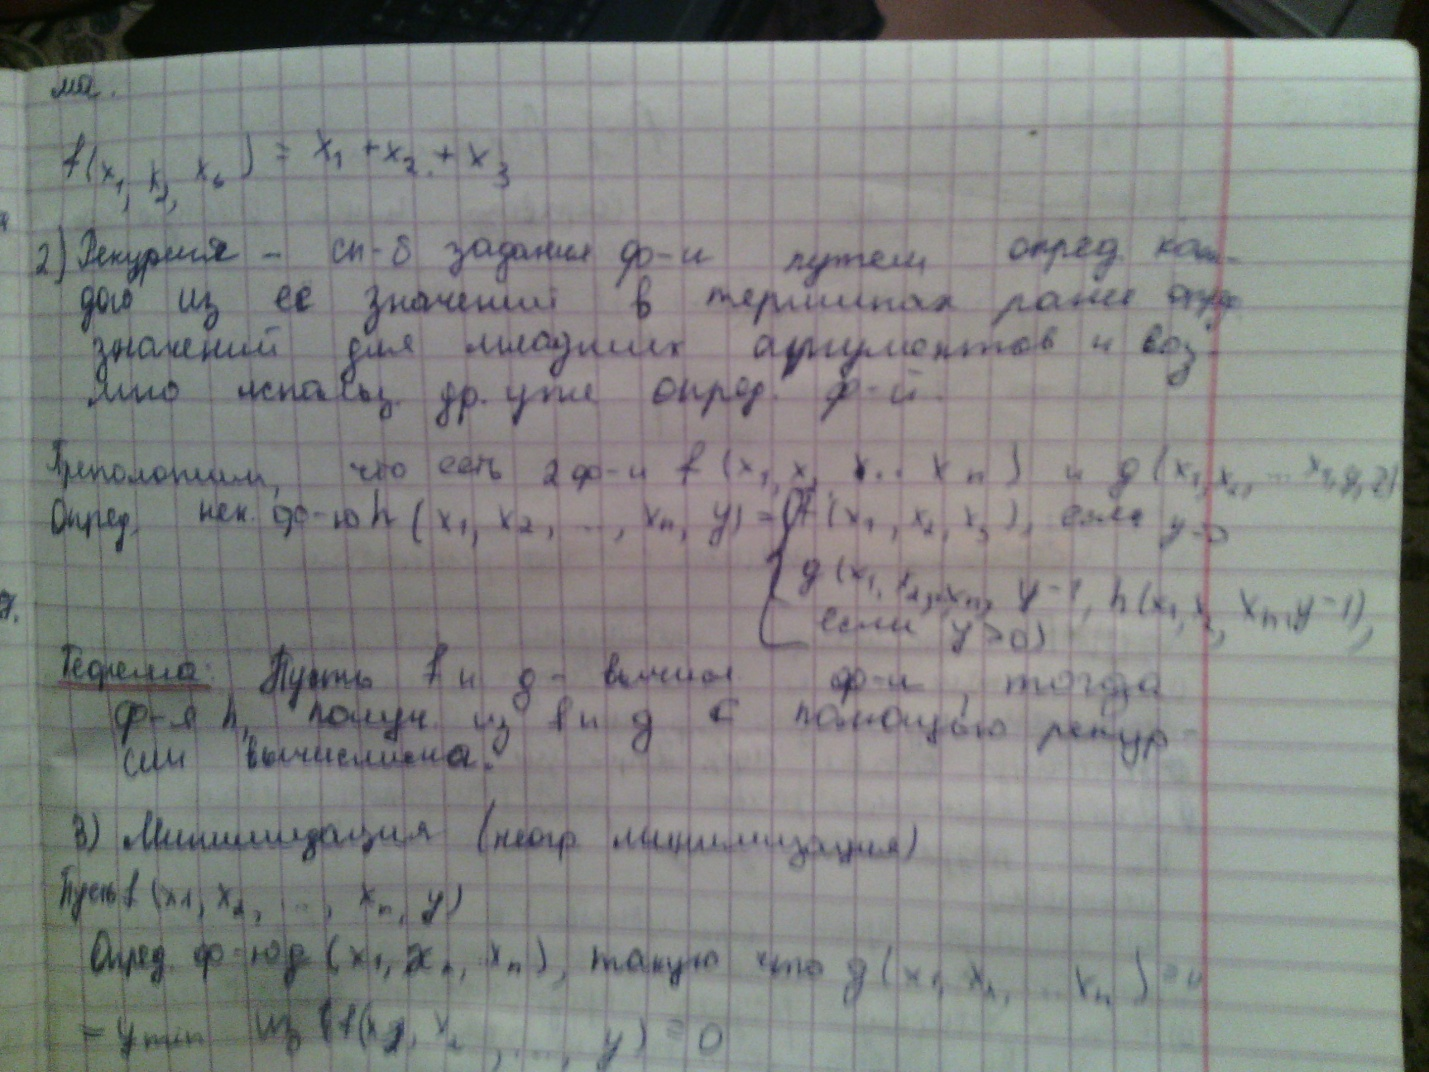 ма.
f(x₁, x₂, x₃) = x₁ + x₂ + x₃
2) Рекурсия – сп-б задания ф-и путем опред. каж-
дого из ее значений в терминах ранее опред
значений для младших аргументов и воз-
мно использ. др. уже опред. ф-й.
Преположим, что есть 2 ф-и f(x₁, x₂ ... xₙ) и g(x₁, x₂, ... xₙ, y, z)
Опред. нек. ф-ю h(x₁, x₂, ..., xₙ, y) = f(x₁, x₂, x₃), если y=0
g(x₁, x₂, xₙ, y-1, h(x₁, x₂, xₙ, y-1),
если y>0)
Теорема: Пусть f и g – вычисл ф-и, тогда
ф-я h, получ. из f и g с помощью рекур-
сии вычислима.
3) Минимизация (неогр минимизация)
Пусть f(x₁, x₂, ..., xₙ, y)
Опред. ф-ю g(x₁, xₙ, xₙ), такую что g(x₁, x₂, ... xₙ) =
= y min из f(x₁, x₂, ..., y) = 0